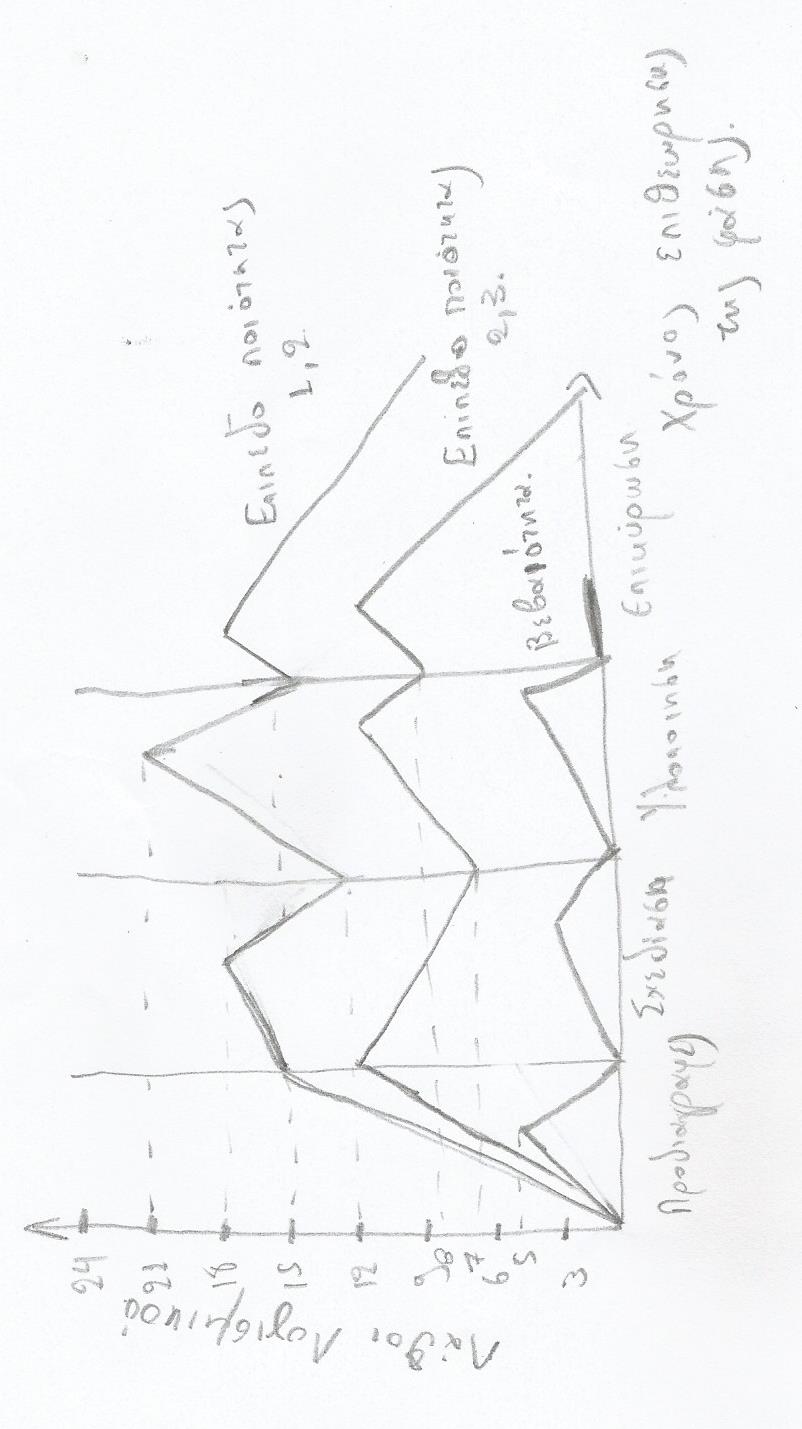 Λάθοι Λογισμικού
24
21
18
15
12
9
8
7
6
5
3
Επιπεδο ποιότητας
1,2
Επιπεδο ποιότητας
2,3.
Βεβαιότητα.
Προδιαγραφες
Σχεδίαση
Υλοποιηση
Επικύρωση
Χρόνος επιθεωρησης
της φάσης.